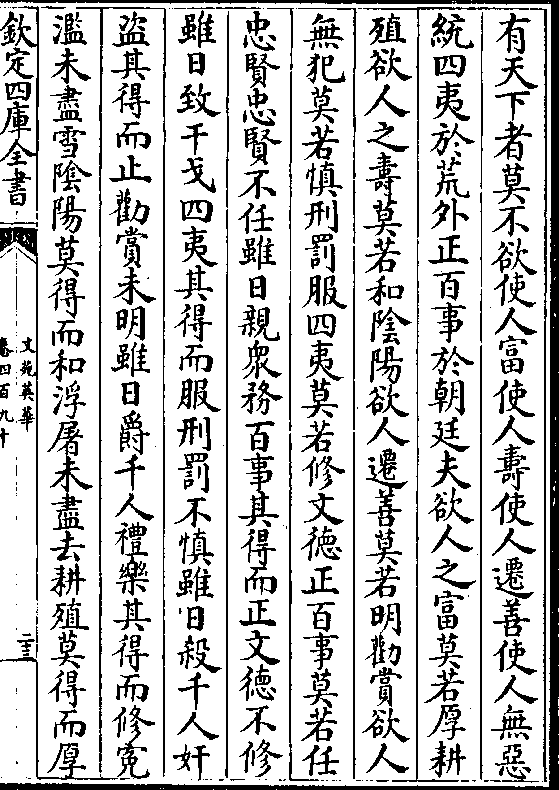 有天下者莫不欲使人富使人壽使人遷善使人無惡
統四夷於荒外正百事於朝廷夫欲人之富莫若厚耕
殖欲人之壽莫若和陰陽欲人遷善莫若明勸賞欲人
無犯莫若慎刑罰服四夷莫若修文徳正百事莫若任
忠賢忠賢不任雖日親衆務百事其得而正文徳不修
雖日致干戈四夷其得而服刑罰不慎雖日殺千人奸
盜其得而止勸賞未明雖日爵千人禮樂其得而修寃
濫未盡雪陰陽莫得而和浮屠未盡去耕殖莫得而厚
欽定四庫全書
文苑英華
卷四百九十
二十三